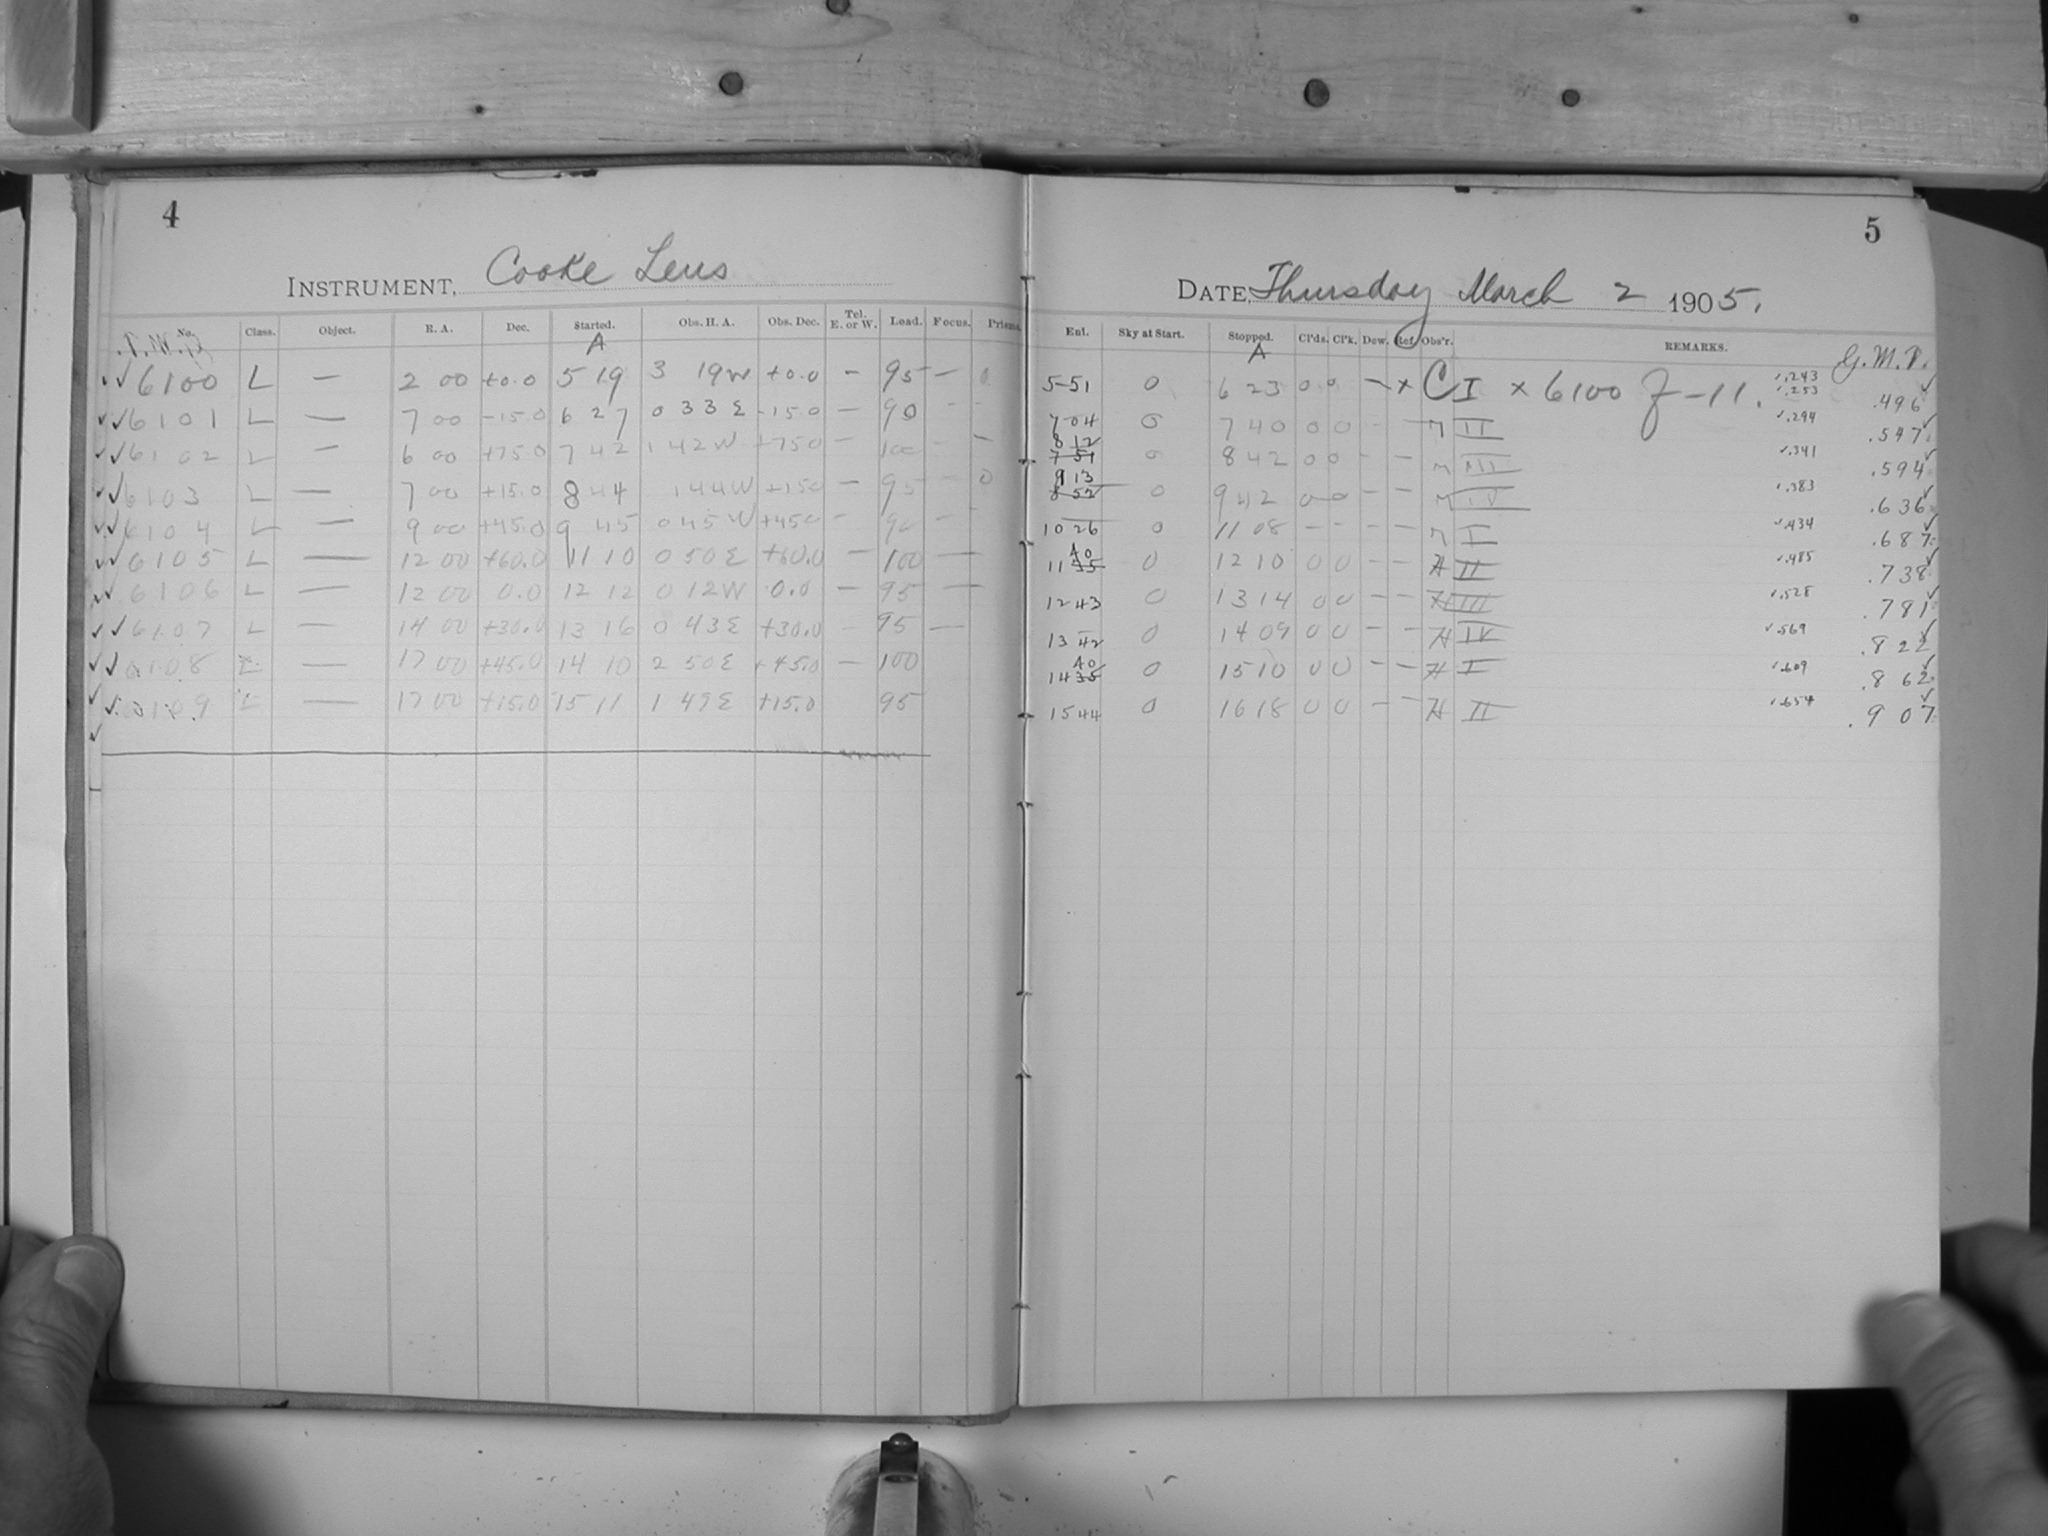 4
INSTRUMENT, Cooke Lens
No. Class. Object. R. A. Dec. Started. Obs. H. A. Obs. Dec. Tel. E. or W. Load. Focus. Prisms.
A
✓✓ 6100 L — 2 00 +0.0 5 19 3 19 W +0.0 — 95 — 0
✓✓ 6101 L — 7 00 -15.0 6 27 0 33 E -15.0 — 90 - -
✓✓ 6102 L — 6 00 +75.0 7 42 1 42 W +75.0 — 100 - -
✓✓ 6103 L — 7 00 +15.0 8 44 1 44 W +15.0 — 95 - 0
✓✓ 6104 L — 9 00 +45.0 9 45 0 45 W +45.0 — 90 - -
✓✓ 6105 L — 12 00 +60.0 11 10 0 50 E +60.0 — 100 —
✓✓ 6106 L — 12 00 0.0 12 12 0 12 W 0.0 — 95 —
✓✓ 6107 L — 14 00 +30.0 13 16 0 43 E +30.0 — 95 —
✓✓ 6108 L — 17 00 +45.0 14 10 2 50 E +45.0 — 100
✓✓ 6109 L — 17 00 +15.0 15 11 1 49 E +15.0 95
5
DATE, Thursday March 2 1905.
Enl. Sky at Start. Stopped. Cl'ds. Cl'k. Dew. Ref. Obs'r. REMARKS. G. M. T.
A
5-51 0 6 23 0 0 — × C I × 6100 f-11. .243 .253 .496
7 04 0 7 40 0 0 - - II .294 .547
8 12 7 51 0 8 42 0 0 - - III .341 .594
9 13 8 52 0 9 42 0 0 - - IV .383 .636
10 26 0 11 08 - - - - I .434 .687
11 35 40 0 12 10 0 0 - - II .485 .738
12 43 0 13 14 0 0 - - III .528 .781
13 42 0 14 09 0 0 - - IV .569 .822
14 35 40 0 15 10 0 0 - - I .609 .862
15 44 0 16 18 0 0 - - II .654 .907